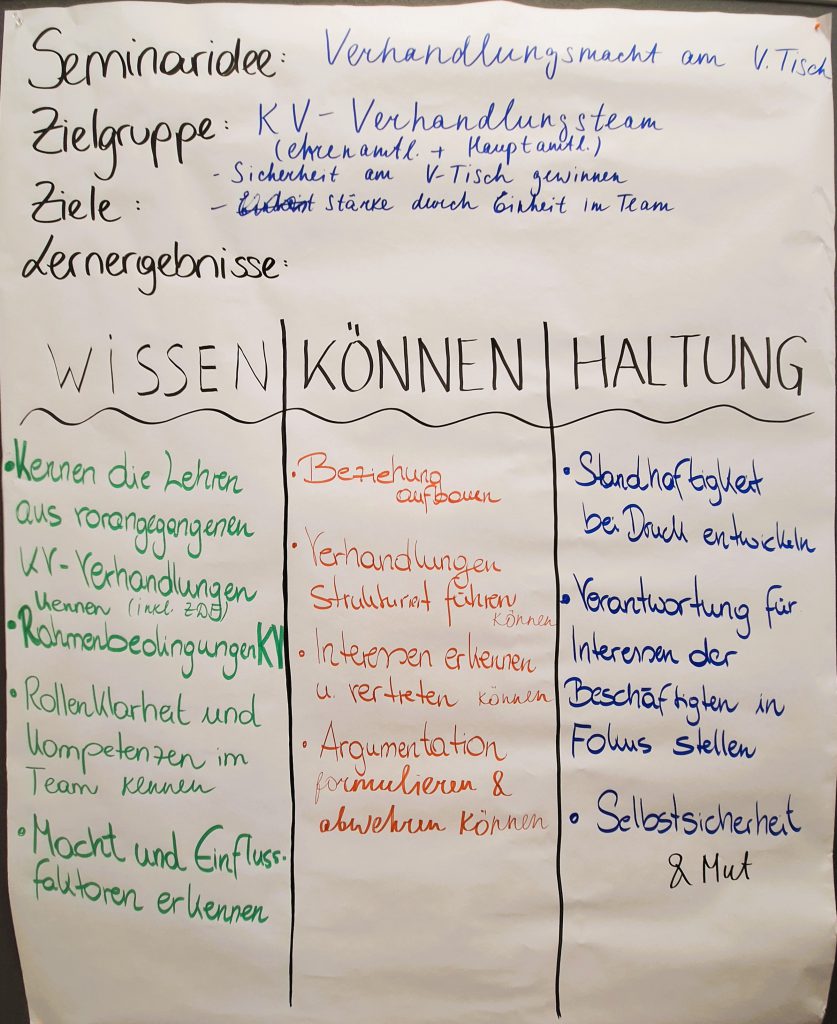 Seminaridee: Verhandlungsmacht am V. Tisch
Zielgruppe: KV-Verhandlungsteam
(ehrenamtl. + Hauptamtl.)
Ziele: - Sicherheit am V-Tisch gewinnen
- Stärke durch Einheit im Team
Lernergebnisse:
WISSEN
• Kennen die Lehren
aus vorangegangenen
KV-Verhandlungen
kennen (inkl. ZDF)
• Rahmenbedingungen KV
• Rollenklarheit und
Kompetenzen im
Team kennen
• Macht und Einfluss-
faktoren erkennen
KÖNNEN
• Beziehung
aufbauen
• Verhandlungen
strukturiert führen
können
• Interessen erkennen
u. vertreten können
• Argumentation
formulieren &
abwehren können
HALTUNG
• Standhaftigkeit
bei Druck entwickeln
• Verantwortung für
Interessen der
Beschäftigten in
Fokus stellen
• Selbstsicherheit
& Mut